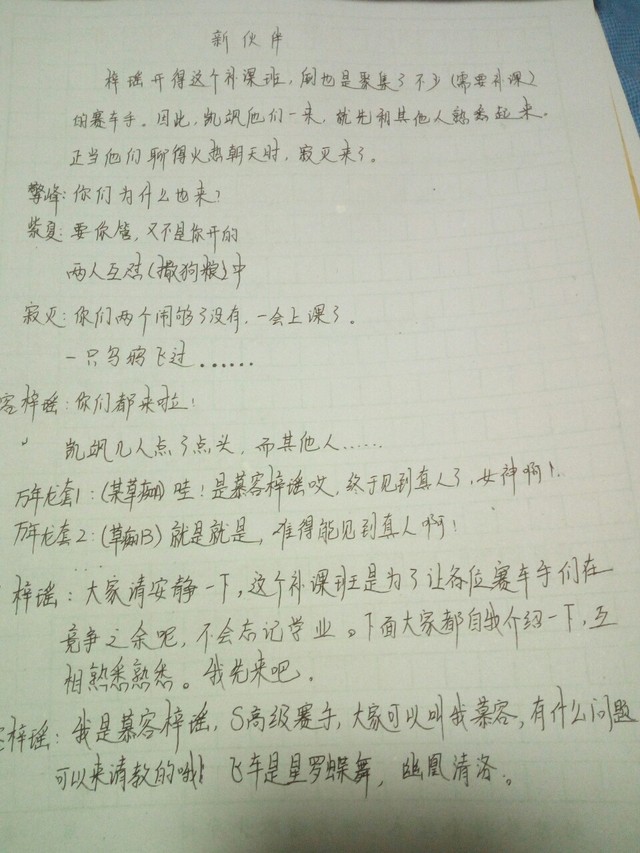 新伙伴
梓瑶开得这个补课班,倒也是聚集了不少(需要补课)
的赛车手。因此,凯飒他们一来,就先和其他人熟悉起来。
正当他们聊得火热朝天时,寂灭来了。
擎峰:你们为什么也来?
紫夏:要你管,又不是你开的
两人互怼(撒狗粮)中
寂灭:你们两个闹够了没有,一会上课了。
一只乌鸦飞过......
容梓瑶:你们都来啦!
凯飒几人点了点头,而其他人......
万年龙套1:(某草痴A)哇!是慕容梓瑶哎,终于见到真人了,女神啊!
万年龙套2:(草痴B)就是就是,难得能见到真人啊!
梓瑶:大家请安静一下,这个补课班是为了让各位赛车手们在
竞争之余呢,不会忘记学业。下面大家都自我介绍一下,互
相熟悉熟悉。我先来吧。
梓瑶:我是慕容梓瑶,S高级赛手,大家可以叫我慕容,有什么问题
可以来请教的哦! 飞车是星罗蝶舞,幽凰清洛。